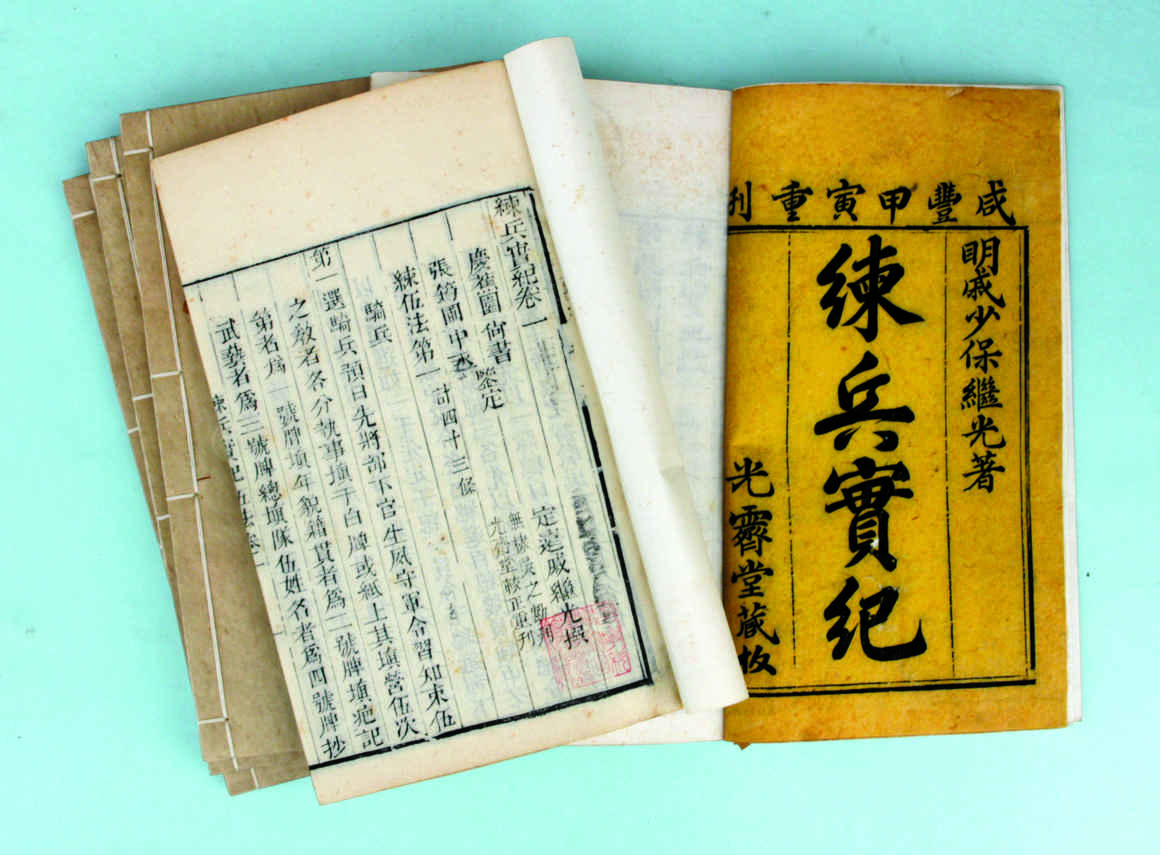 咸豐甲寅重刊
明戚少保繼光著
練兵實紀
光霽堂藏板
練兵實紀卷一
慶蕉園尚書
張筠圃中丞
鑒定
定遠戚繼光撰
光霽堂校正重刊
練伍法第一計四十三條
騎兵
第一選騎兵預日先將部下官生夙守軍令習知束伍
之教者各分執事填于白牌或紙上其填營伍次
第者為一號牌填年貌籍貫者為二號牌填疤記
武藝者為三號牌總填隊伍姓名者為四號牌抄
練兵實紀 伍法卷一